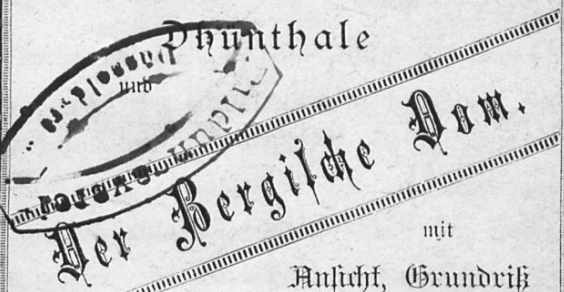 Dhünthale
und
Der Bergische Dom.
mit
Ansicht, Grundriß